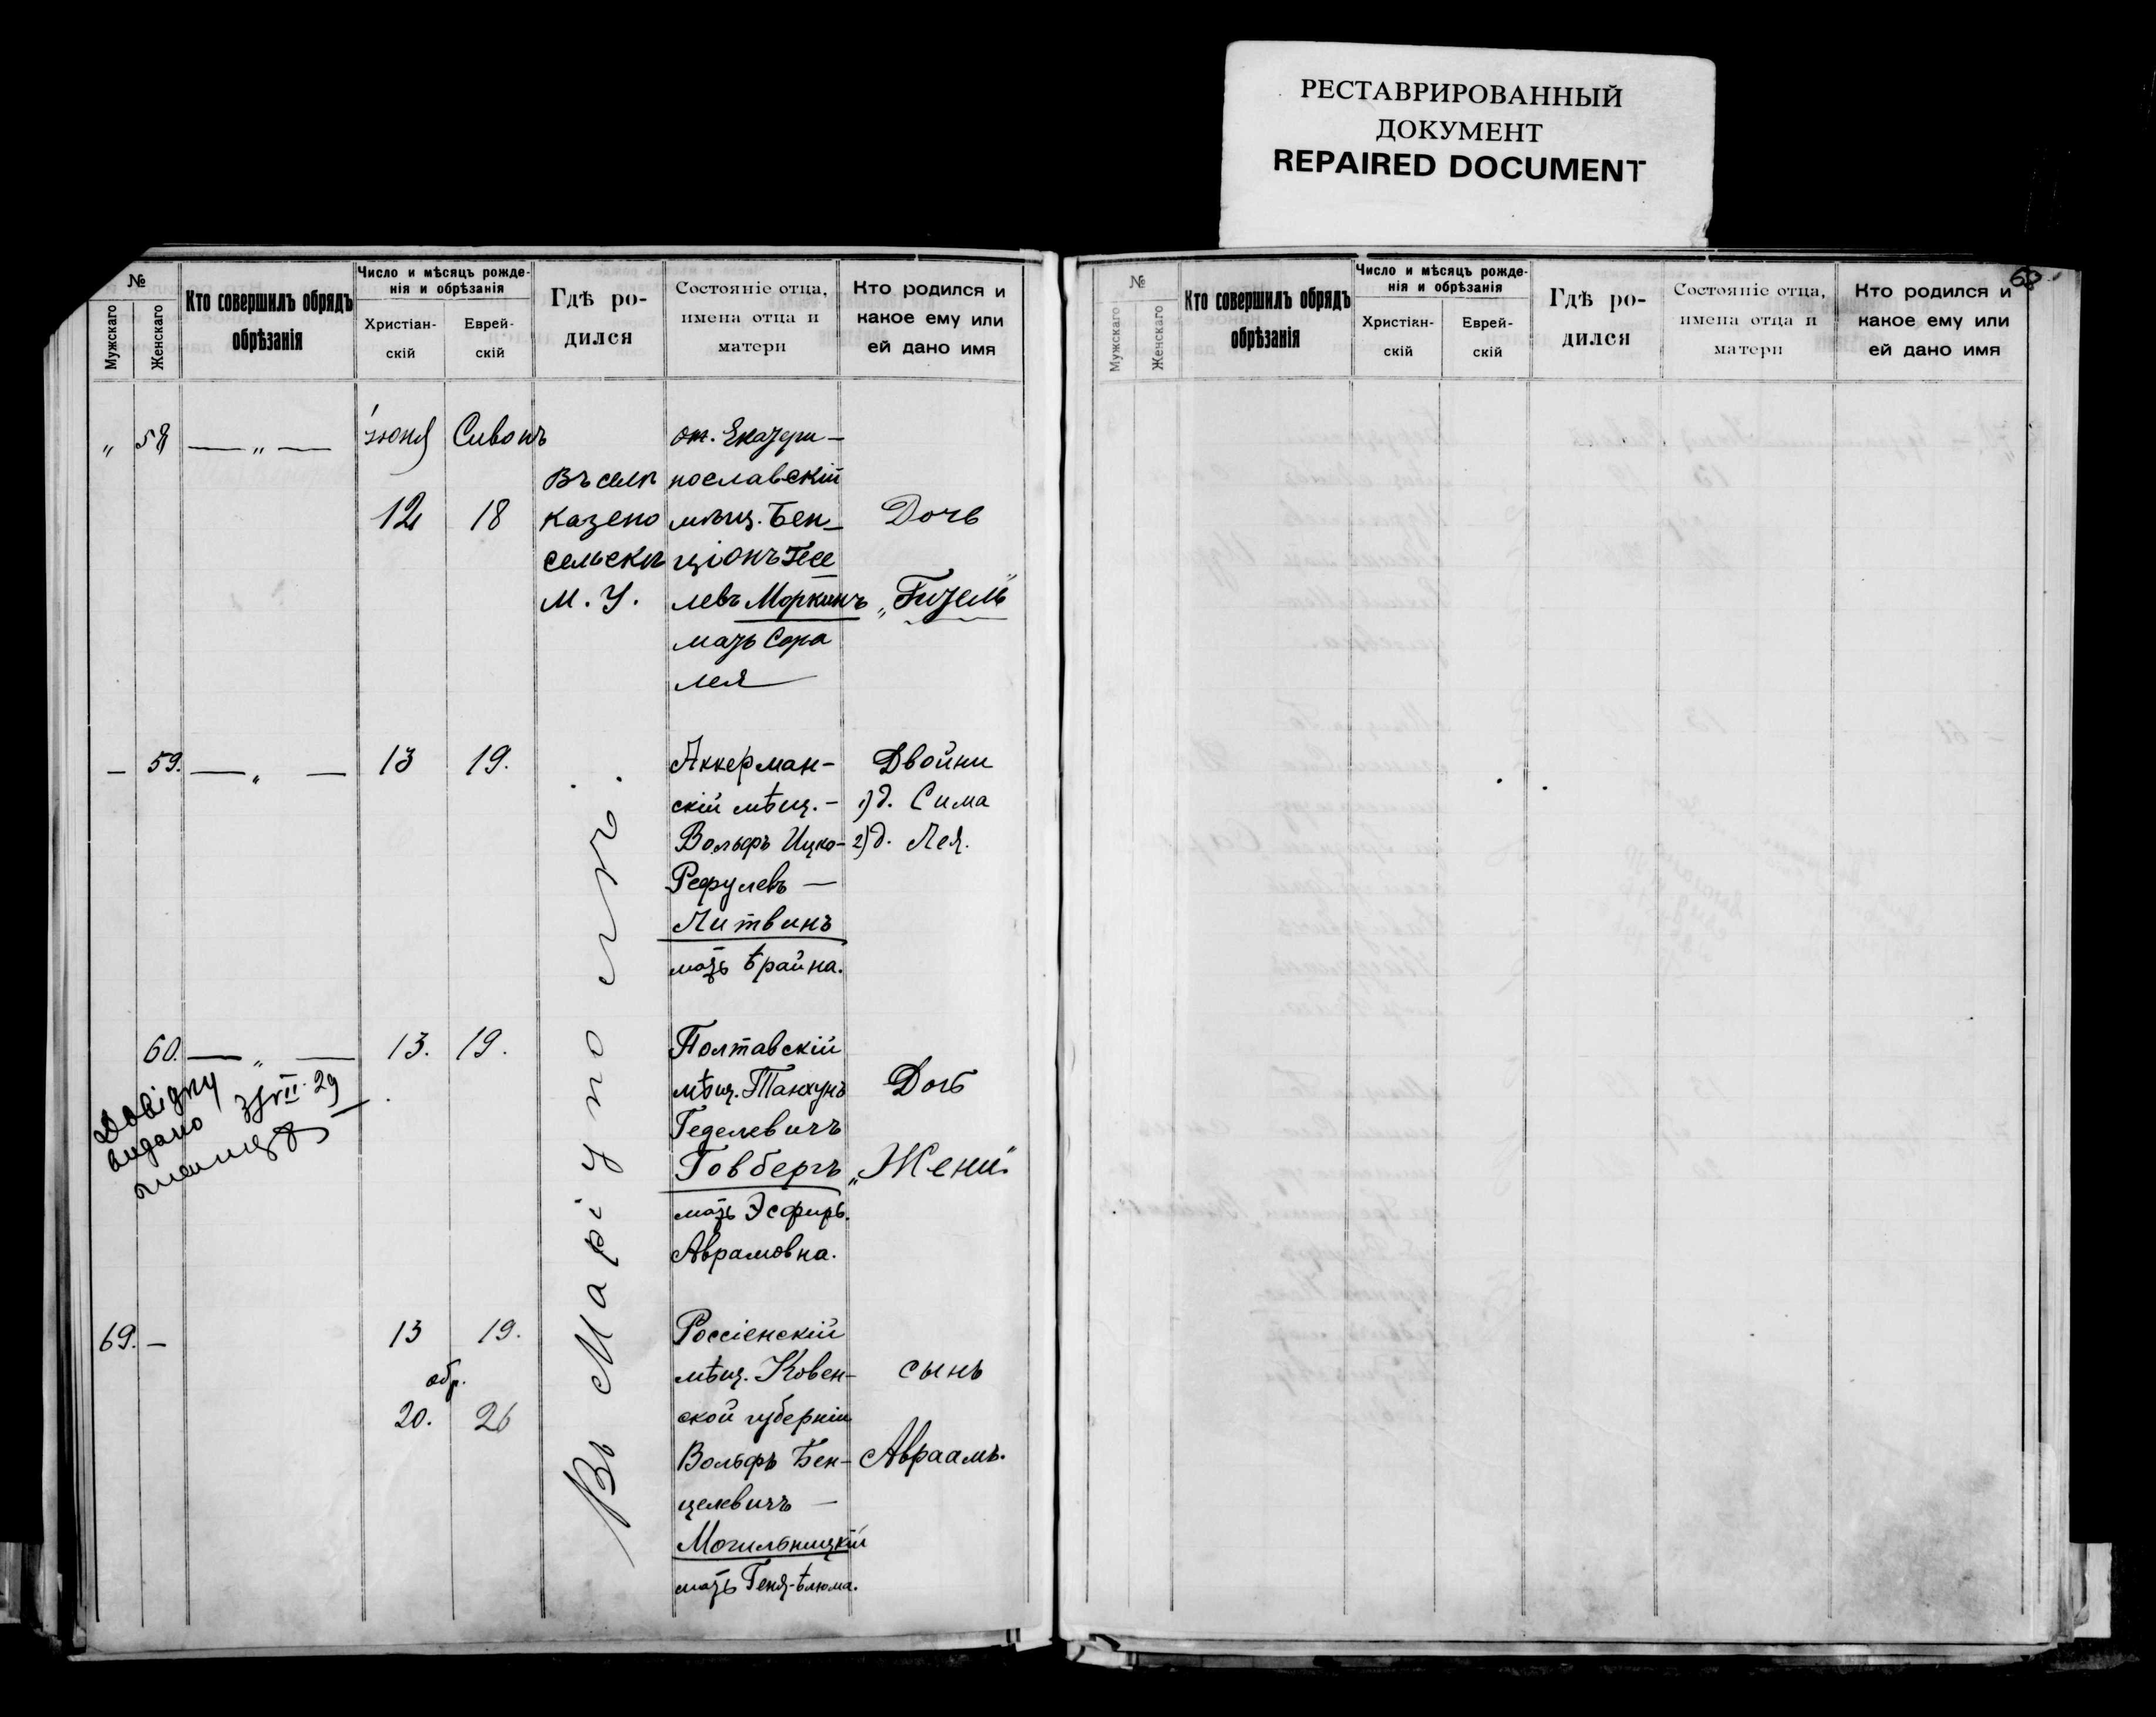 РЕСТАВРИРОВАННЫЙ
ДОКУМЕНТ
REPAIRED DOCUMENT
№
Мужскаго
Женскаго
Кто совершилъ обрядъ
обрѣзанія
Число и мѣсяцъ рожде-
нія и обрѣзанія
Христіан-
скій
Еврей-
скій
Гдѣ ро-
дился
Состояніе отца,
имена отца и
матери
Кто родился и
какое ему или
ей дано имя
„ 58 — „ —
іюня Сивонъ
12 18
Въ селѣ
Казено
сельскъ
М. У.
от. Екатери-
нославскій
мѣщ. Бен-
ціонъ Гесе
левъ Моркинъ
мать Сора
Лея
Дочь
„Гизель"
— 59. — „ —
13 19.
Аккерман-
скій мѣщ. -
Вольфъ Ицко-
Рефулевъ —
Литвинъ
мать Брайна.
Двойни
1) д. Сима
2) д. Лея.
60. — „ —
13. 19.
Довідку
видано 3/VII-29
Полтавскій
мѣщ. Танхунъ
Геделевичъ
Говбергъ
мать Эсфирь.
Аврамовна.
Дочь
„Жени"
69. —
13 19.
обр.
20. 26
Россіенскій
мѣщ. Ковен-
ской губерніи
Вольфъ Бен-
целевичъ —
Могильницкій
мать Геня-Блюма.
сынъ
Авраамъ.
Въ Маріуполѣ.
№
Мужскаго
Женскаго
Кто совершилъ обрядъ
обрѣзанія
Число и мѣсяцъ рожде-
нія и обрѣзанія
Христіан-
скій
Еврей-
скій
Гдѣ ро-
дился
Состояніе отца,
имена отца и
матери
Кто родился и
какое ему или
ей дано имя